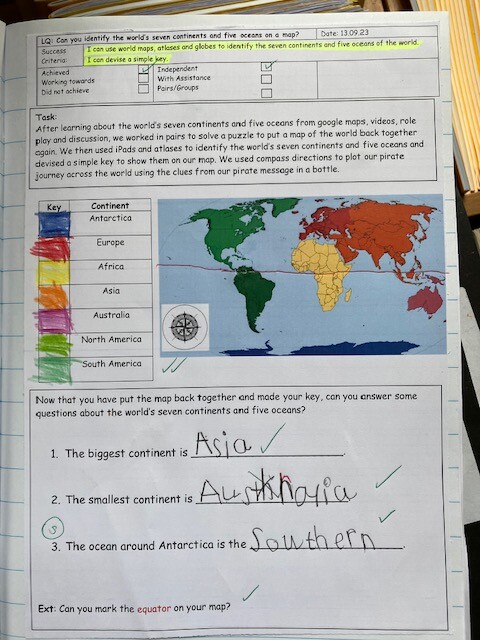 LQ: Can you identify the world's seven continents and five oceans on a map?
Date: 13.09.23
Success Criteria:
I can use world maps, atlases and globes to identify the seven continents and five oceans of the world.
I can devise a simple key.
Achieved
Independent
Working towards
With Assistance
Did not achieve
Pairs/Groups
Task:
After learning about the world's seven continents and five oceans from google maps, videos, role
play and discussion, we worked in pairs to solve a puzzle to put a map of the world back together
again. We then used iPads and atlases to identify the world's seven continents and five oceans and
devised a simple key to show them on our map. We used compass directions to plot our pirate
journey across the world using the clues from our pirate message in a bottle.
Key
Continent
Antarctica
Europe
Africa
Asia
Australia
North America
South America
Now that you have put the map back together and made your key, can you answer some
questions about the world's seven continents and five oceans?
1. The biggest continent is Asia.
2. The smallest continent is
S
3. The ocean around Antarctica is the Southern.
Ext: Can you mark the equator on your map?